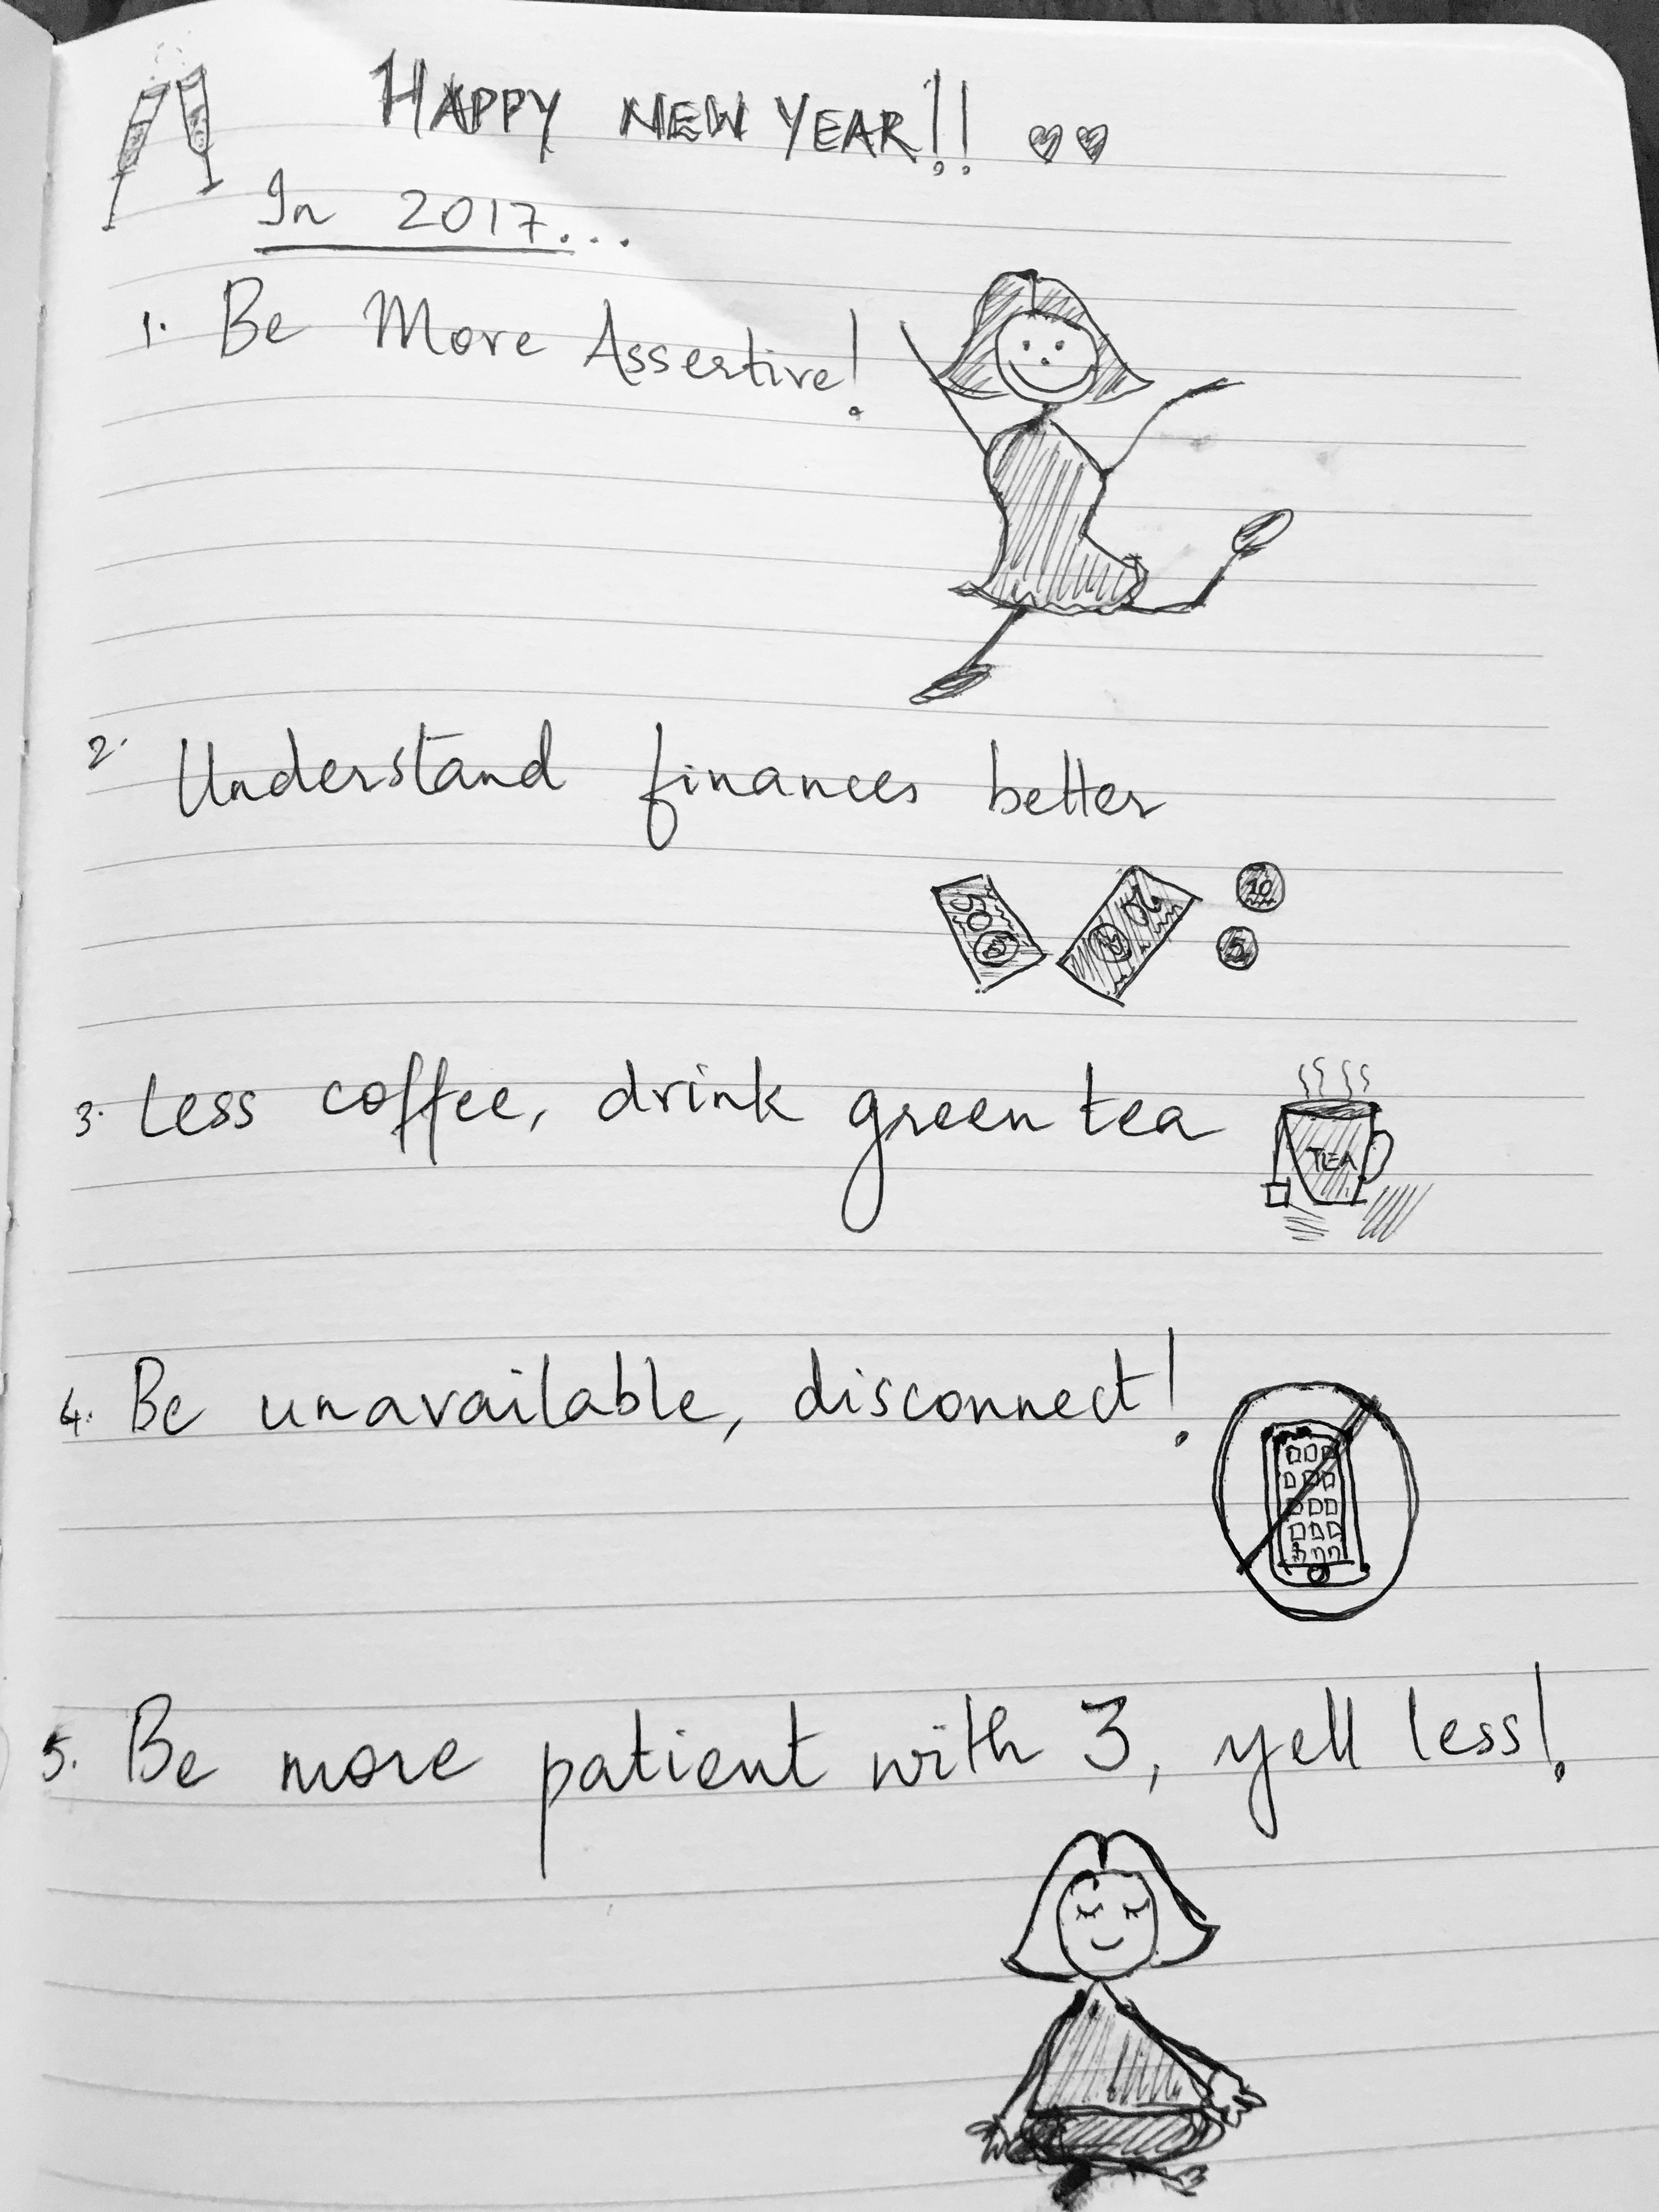 HAPPY NEW YEAR!!
In 2017...
1. Be More Assertive!
2. Understand finances better
50
20
10
5
3. Less coffee, drink green tea
TEA
4. Be unavailable, disconnect!
5. Be more patient with 3, yell less!